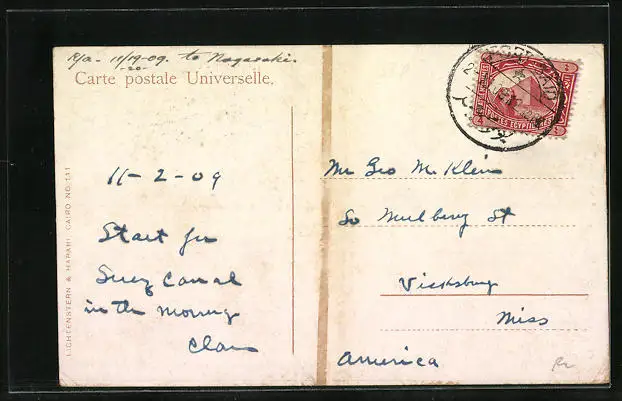 R/a. 11/19-09. to Nagasaki.
-20-
Carte postale Universelle.
11-2-09
Start for
Suez Canal
in the morning
Clara
Mr Geo M. Klein
So Mulberry St
Vicksburg
Miss
America
LICHTENSTERN & HARARI CAIRO NO. 141
PORT SAID
POSTES EGYPTIENNES